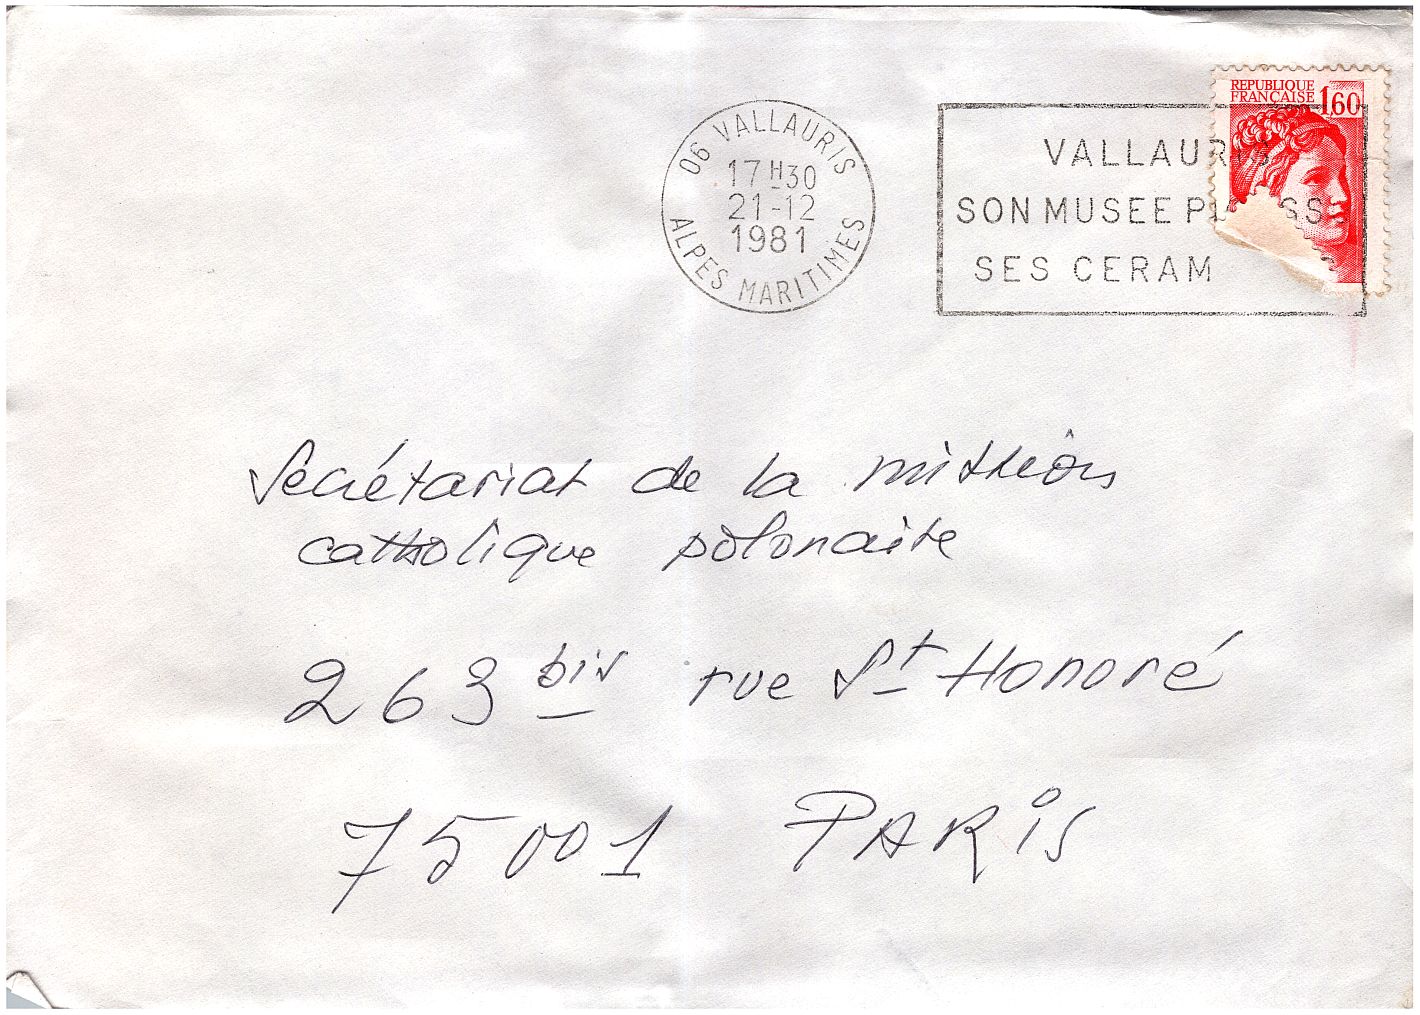 06 VALLAURIS
17H30
21-12
1981
ALPES MARITIMES
VALLAURIS
SON MUSEE
SES CERAM
REPUBLIQUE
FRANÇAISE 1,60
Secrétariat de la mission
catholique polonaise
263 bis rue St Honoré
75001 PARIS